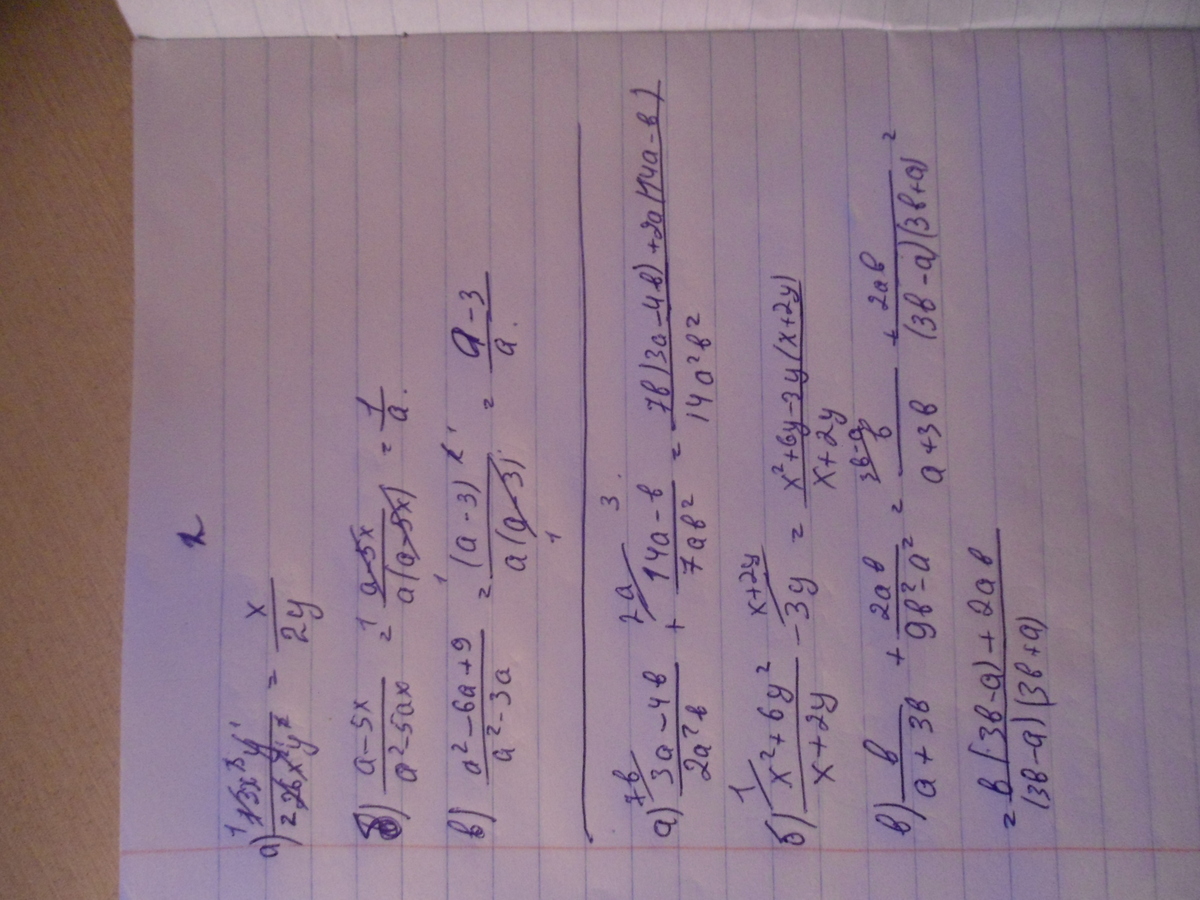 2
а) 13x³y / 26x²y² = x / 2y
б) a-5x / a²-5ax = a-5x / a(a-5x) = 1 / a.
в) a²-6a+9 / a²-3a = (a-3)² / a(a-3) = a-3 / a.
3.
а) 7в/ 3a-4в / 2a²в + 2a/ 14a-в / 7aв² = 7в(3a-4в)+2a(14a-в) / 14a²в²
б) 1/ x²+6y² / x+2y - x+2y/ 3y = x²+6y-3y(x+2y) / x+2y
в) в / a+3в + 2aв / 9в²-a² = 3в-a/ в / a+3в + 2aв / (3в-a)(3в+a) =
= в(3в-a)+2aв / (3в-a)(3в+a)